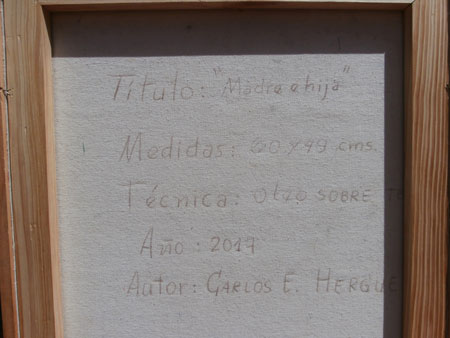 Título: "Madre e hija"
Medidas: 60 x 49 cms.
Técnica: OLEO SOBRE TE
Año: 2017
Autor: CARLOS E. HERGUE